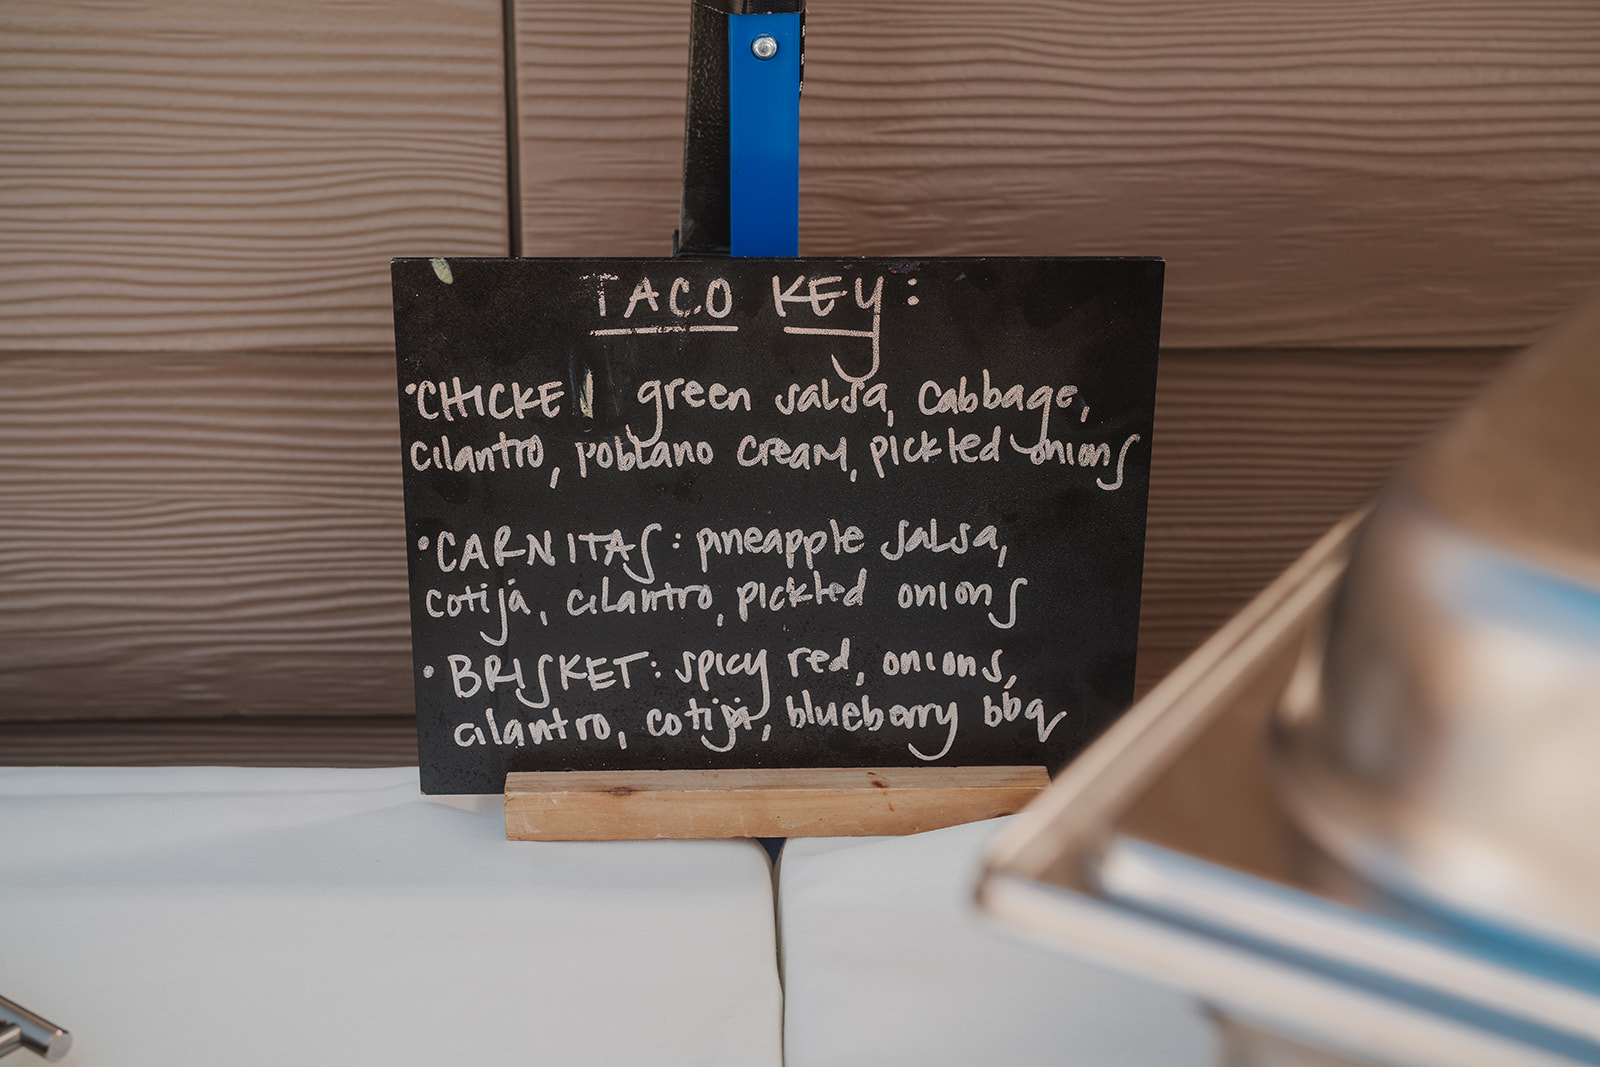 TACO KEY:
•CHICKEN green salsa, cabbage,
cilantro, poblano cream, pickled onions
•CARNITAS: pineapple salsa,
cotija, cilantro, pickled onions
•BRISKET: spicy red, onions,
cilantro, cotija, blueberry bbq